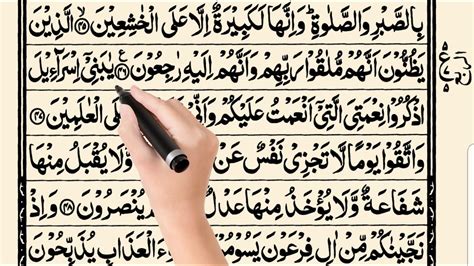 بِالصَّبْرِ وَالصَّلٰوةِ ؕ وَاِنَّهَا لَكَبِيْرَةٌ اِلَّا عَلَى الْخٰشِعِيْنَ ۙ﴿۴۵﴾ الَّذِيْنَ
يَظُنُّوْنَ اَنَّهُمْ مُّلٰقُوْا رَبِّهِمْ وَاَنَّهُمْ اِلَيْهِ رٰجِعُوْنَ ﴿۴۶﴾ ع يٰبَنِيْۤ اِسْرَآءِيْلَ
اذْكُرُوْا نِعْمَتِيَ الَّتِيْۤ اَنْعَمْتُ عَلَيْكُمْ وَاَنِّيْ عَلَى الْعٰلَمِيْنَ ﴿۴۷﴾
وَاتَّقُوْا يَوْمًا لَّا تَجْزِيْ نَفْسٌ عَنْ وَّلَا يُقْبَلُ مِنْهَا
شَفَاعَةٌ وَّلَا يُؤْخَذُ مِنْهَا عَدْلٌ يُنْصَرُوْنَ ﴿۴۸﴾ وَاِذْ
نَجَّيْنٰكُمْ مِّنْ اٰلِ فِرْعَوْنَ الْعَذَابِ يُذَبِّحُوْنَ